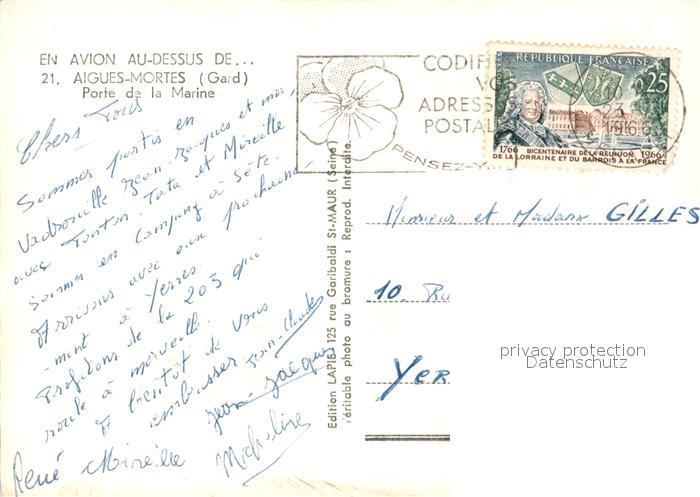 EN AVION AU-DESSUS DE...
21. AIGUES-MORTES (Gard)
Porte de la Marine
Chers Tous
Sommes partis en
Vadrouille Jean-Jacques et moi,
avec Tonton, Tata et Mireille
sommes en Camping à Sète.
Arrivons avec eux prochaine-
-ment à Yerres.
Profitons de la 203 qui
roule à merveille.
A bientôt de vous
embrasser
Jean-Claude
Jean-Jacques
René Mireille Micheline
Edition LAPIE 125 rue Garibaldi St-MAUR (Seine)
Véritable photo au bromure : Reprod. Interdite.
CODIFI
VOS
ADRESSES
POSTAL
PENSEZ-Y
POSTES
REPUBLIQUE FRANÇAISE
0,25
23
1966
1766 BICENTENAIRE DE LA REUNION 1966
DE LA LORRAINE ET DU BARROIS A LA FRANCE
Monsieur et Madame GILLES
10. Ru
Yer
privacy protection
Datenschutz